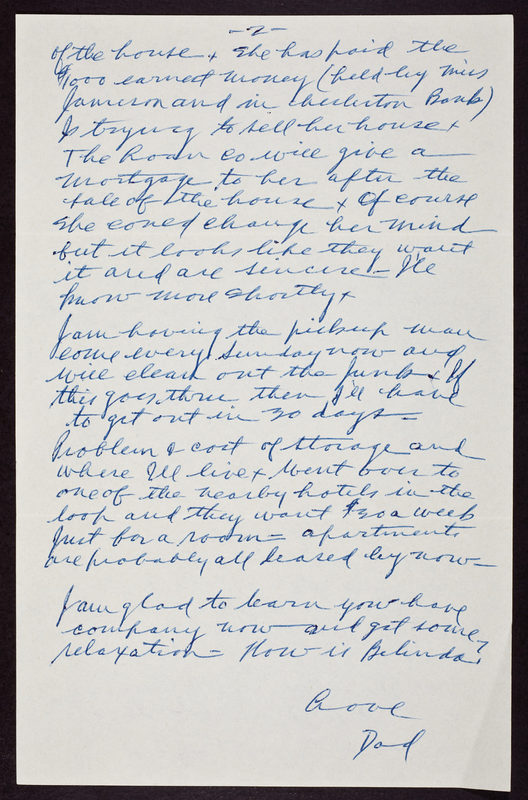 -2-
of the house + she has paid the
$1000 earnest money (held by Miss
Jameson and in Charleston Bank)
Is trying to sell her house +
The Loan co will give a
mortgage to her after the
sale of the house + Of course
she coned change her mind
but it looks like they want
it and are sincere - I'll
know more shortly +
I am having the pickup man
come every Sunday now and
will clean out the junk + If
this goes thru then I'll have
to get out in 30 days -
Problem & cost of storage and
where I'll live + Went over to
one of the nearby hotels in the
loop and they want $30 a week
just for a room - apartments
are probably all leased by now -
I am glad to learn you have
company now and get some
relaxation - How is Belinda?
Love
Dad